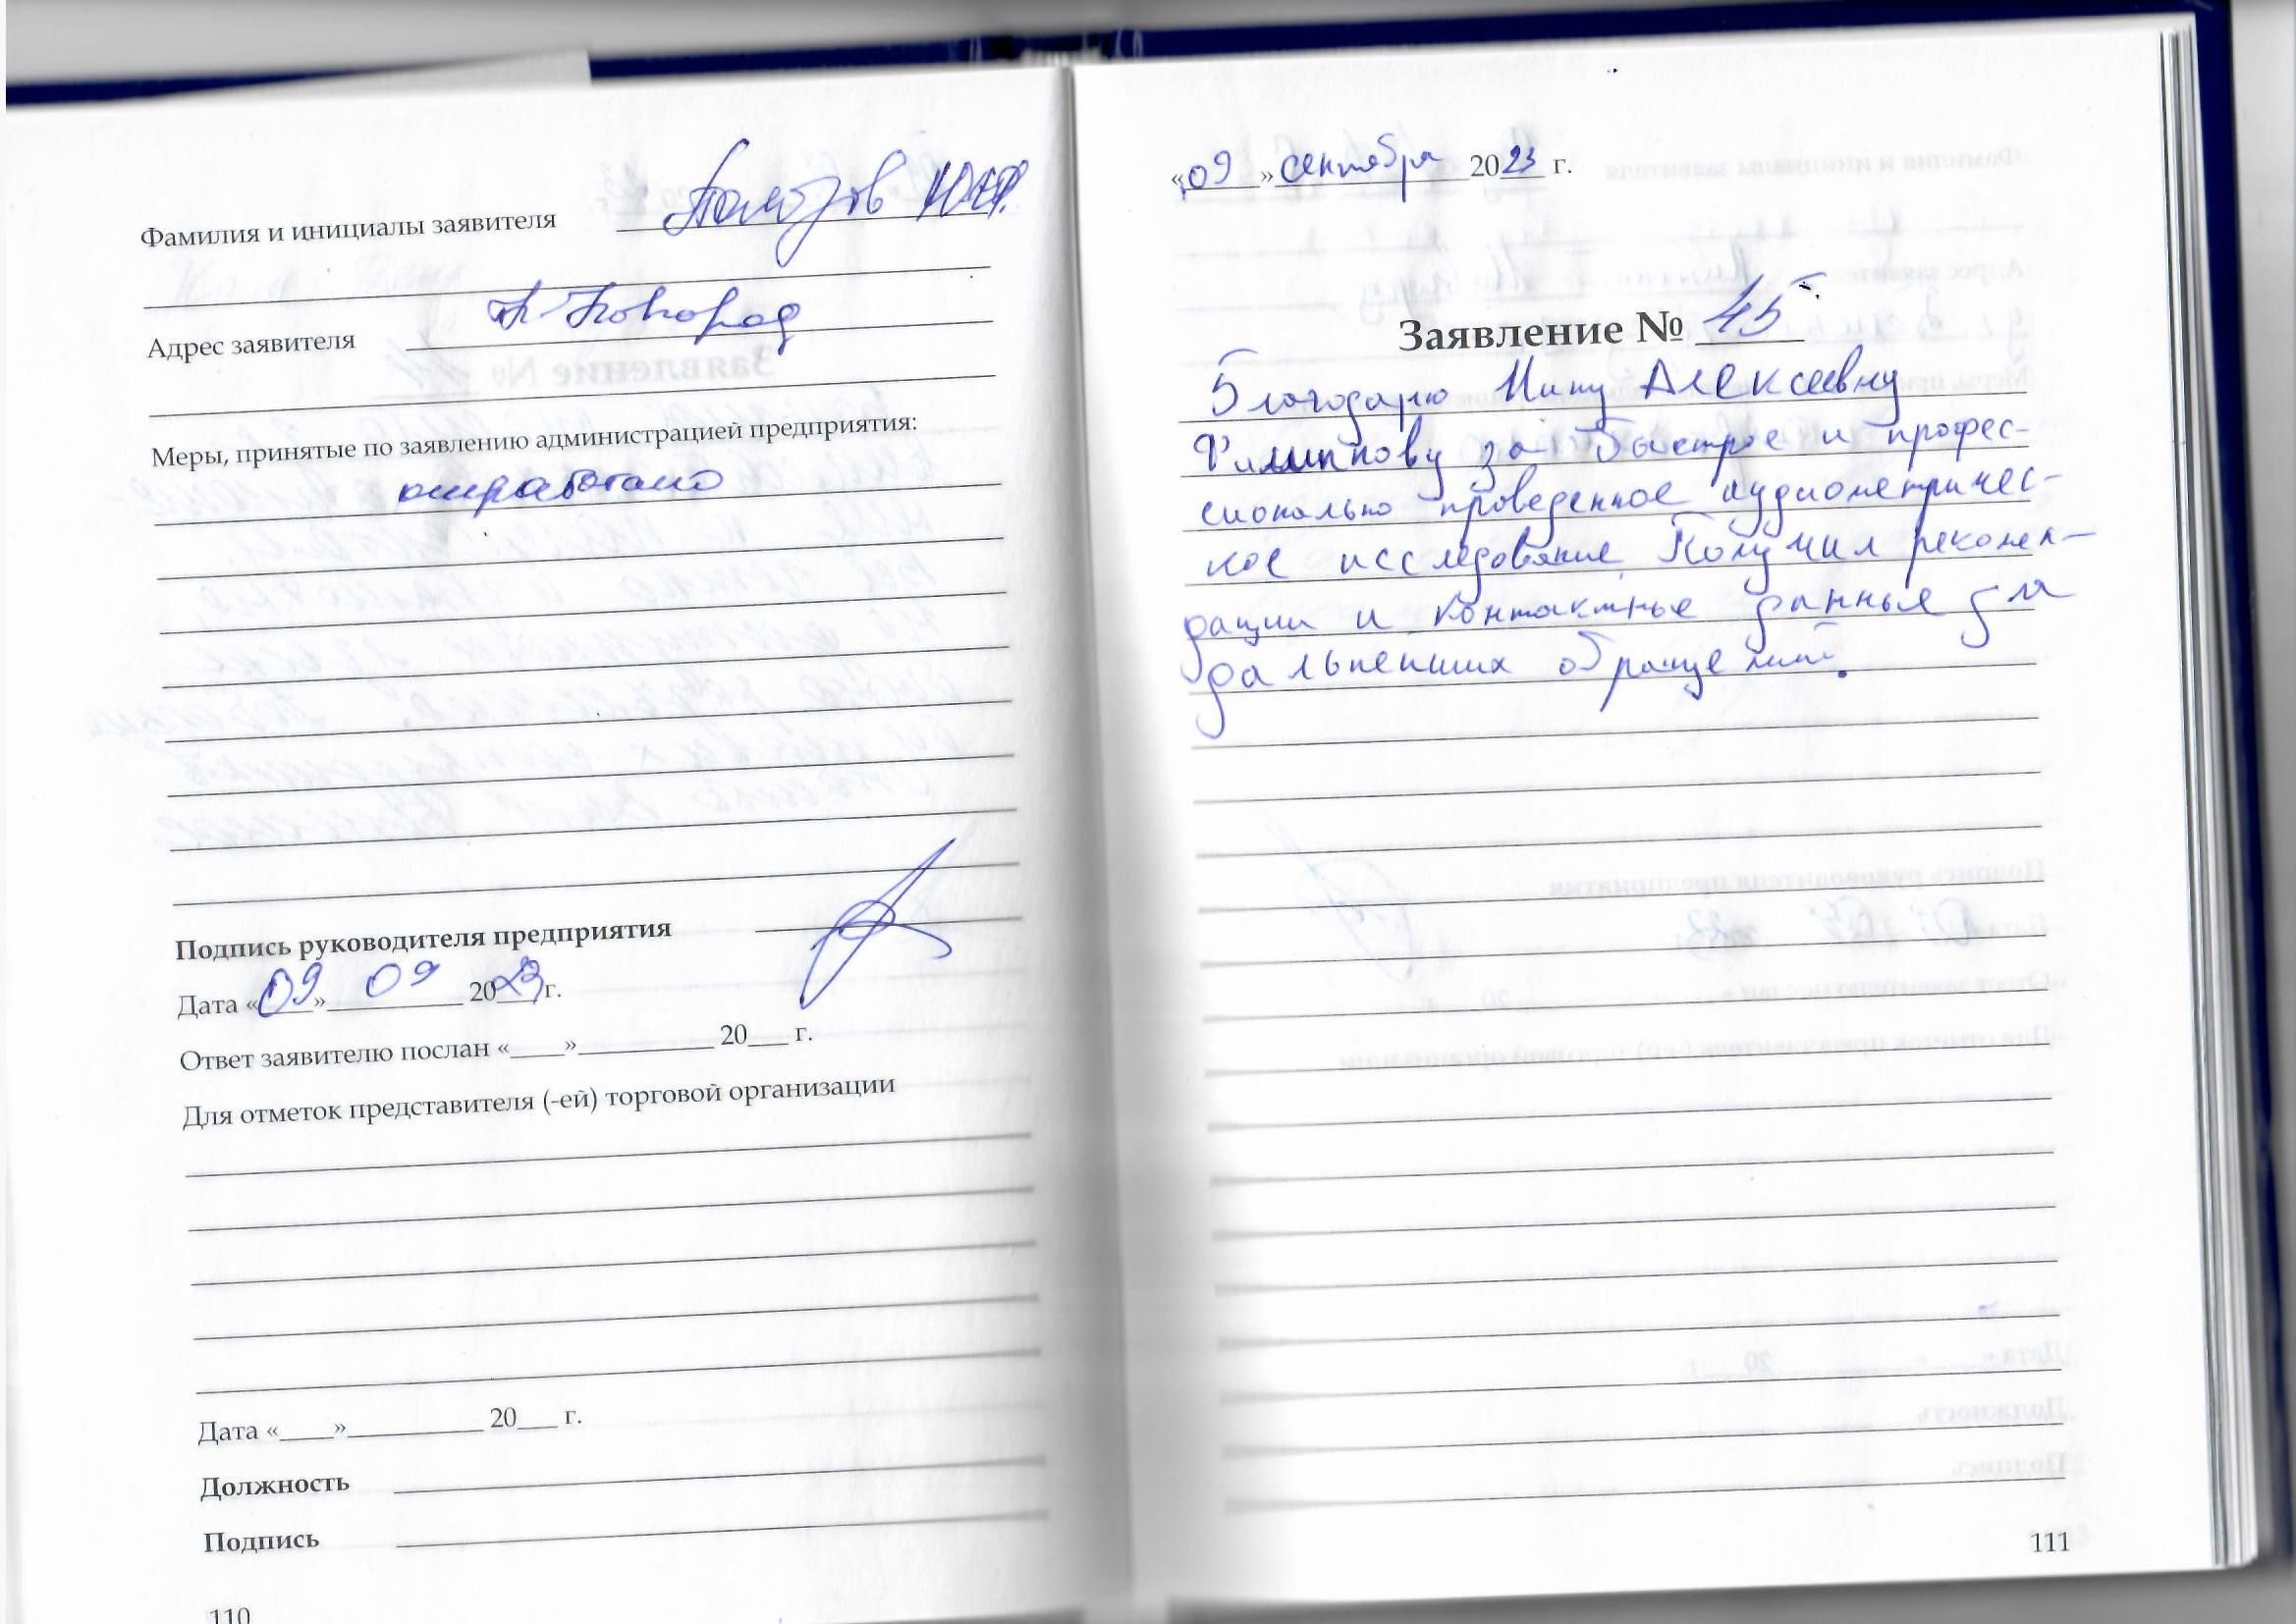 Фамилия и инициалы заявителя
Адрес заявителя Н-Новгород
Меры, принятые по заявлению администрацией предприятия:
отработано
Подпись руководителя предприятия
Дата «09» 09 2023 г.
Ответ заявителю послан «____»__________ 20___ г.
Для отметок представителя (-ей) торговой организации
Дата «____»__________ 20___ г.
Должность
Подпись
110
«09» сентября 2023 г.
Заявление № 45
Благодарю Нину Алексеевну
Филиппову за быстрое и профес-
сионально проведенное аудиометричес-
кое исследование. Получил рекомен-
дации и контактные данные для
дальнейших обращений.
111